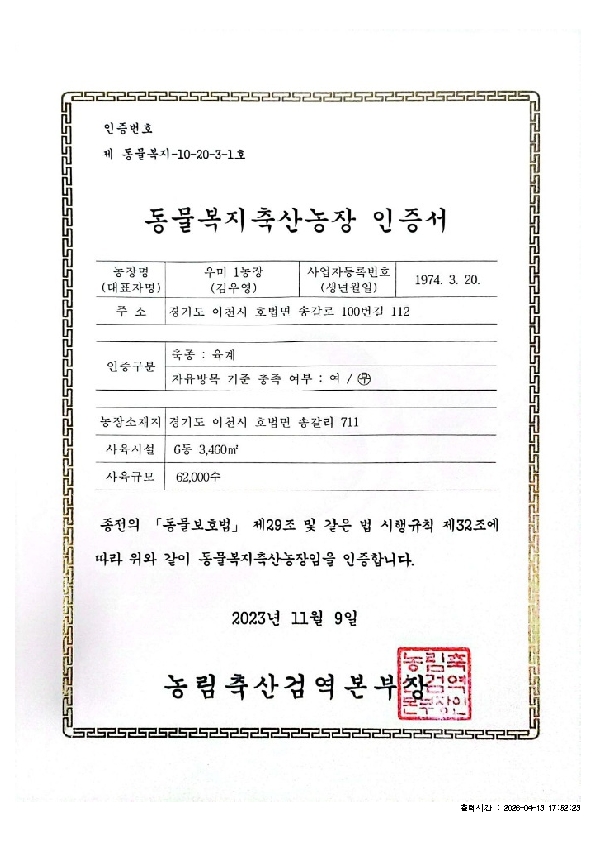 인증번호
제 동물복지-10-20-3-1호
동물복지축산농장 인증서
농장명 (대표자명) 우미 1농장 (김우영) 사업자등록번호 (생년월일) 1974. 3. 20.
주 소 경기도 이천시 호법면 송갈로 100번길 112
인증구분 축종 : 육계
자유방목 기준 충족 여부 : 여 / 부
농장소재지 경기도 이천시 호법면 송갈리 711
사육시설 6동 3,460㎡
사육규모 62,000수
종전의 「동물보호법」 제29조 및 같은 법 시행규칙 제32조에
따라 위와 같이 동물복지축산농장임을 인증합니다.
2023년 11월 9일
농림축산검역본부장
농림축
산검역
본부장인
출력시간 : 2026-04-13 17:52:23